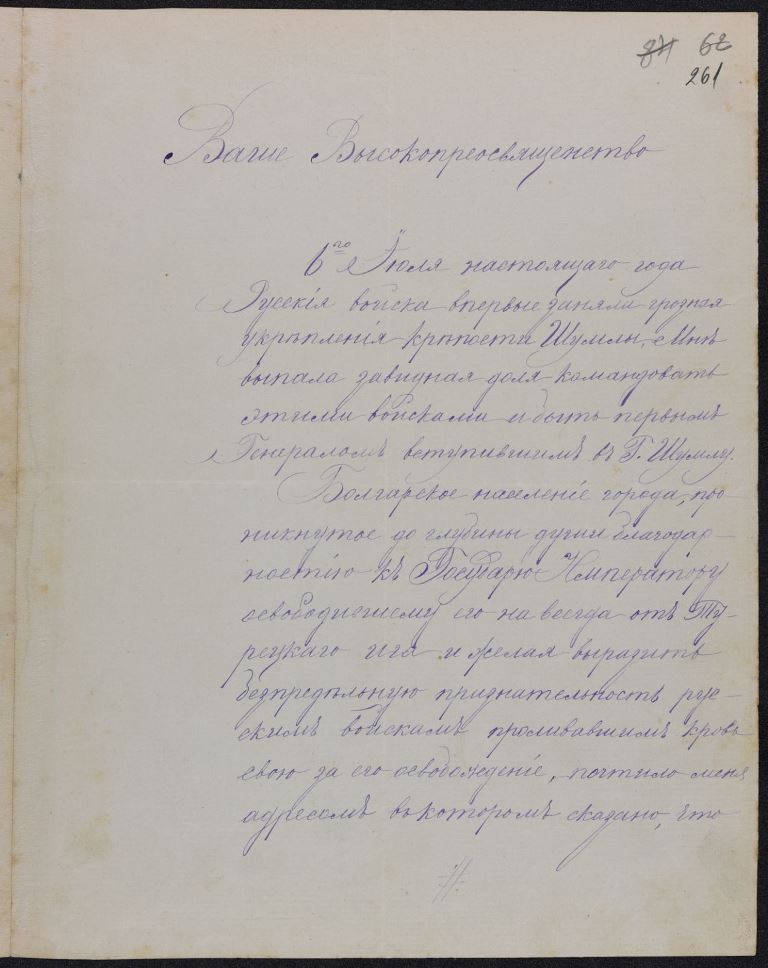 84 62
261
Ваше Высокопреосвященство
6го Iюля настоящаго года
Русскiя войска впервые заняли грозная
укрѣпленiя крѣпости Шумлы, Мнѣ
выпала завидная доля командовать
этими войсками и быть первымъ
Генераломъ вступившимъ въ Г. Шумлу.
Болгарское населенiе города, про-
никнутое до глубины души благодар-
ностiю къ Государю Императору
освободившему его на всегда отъ Ту-
рецкаго ига и желая выразить
безпредѣльную признательность рус-
скимъ войскамъ проливавшимъ кровь
свою за его освобожденiе, почтило меня
адресомъ въ которомъ сказано, что